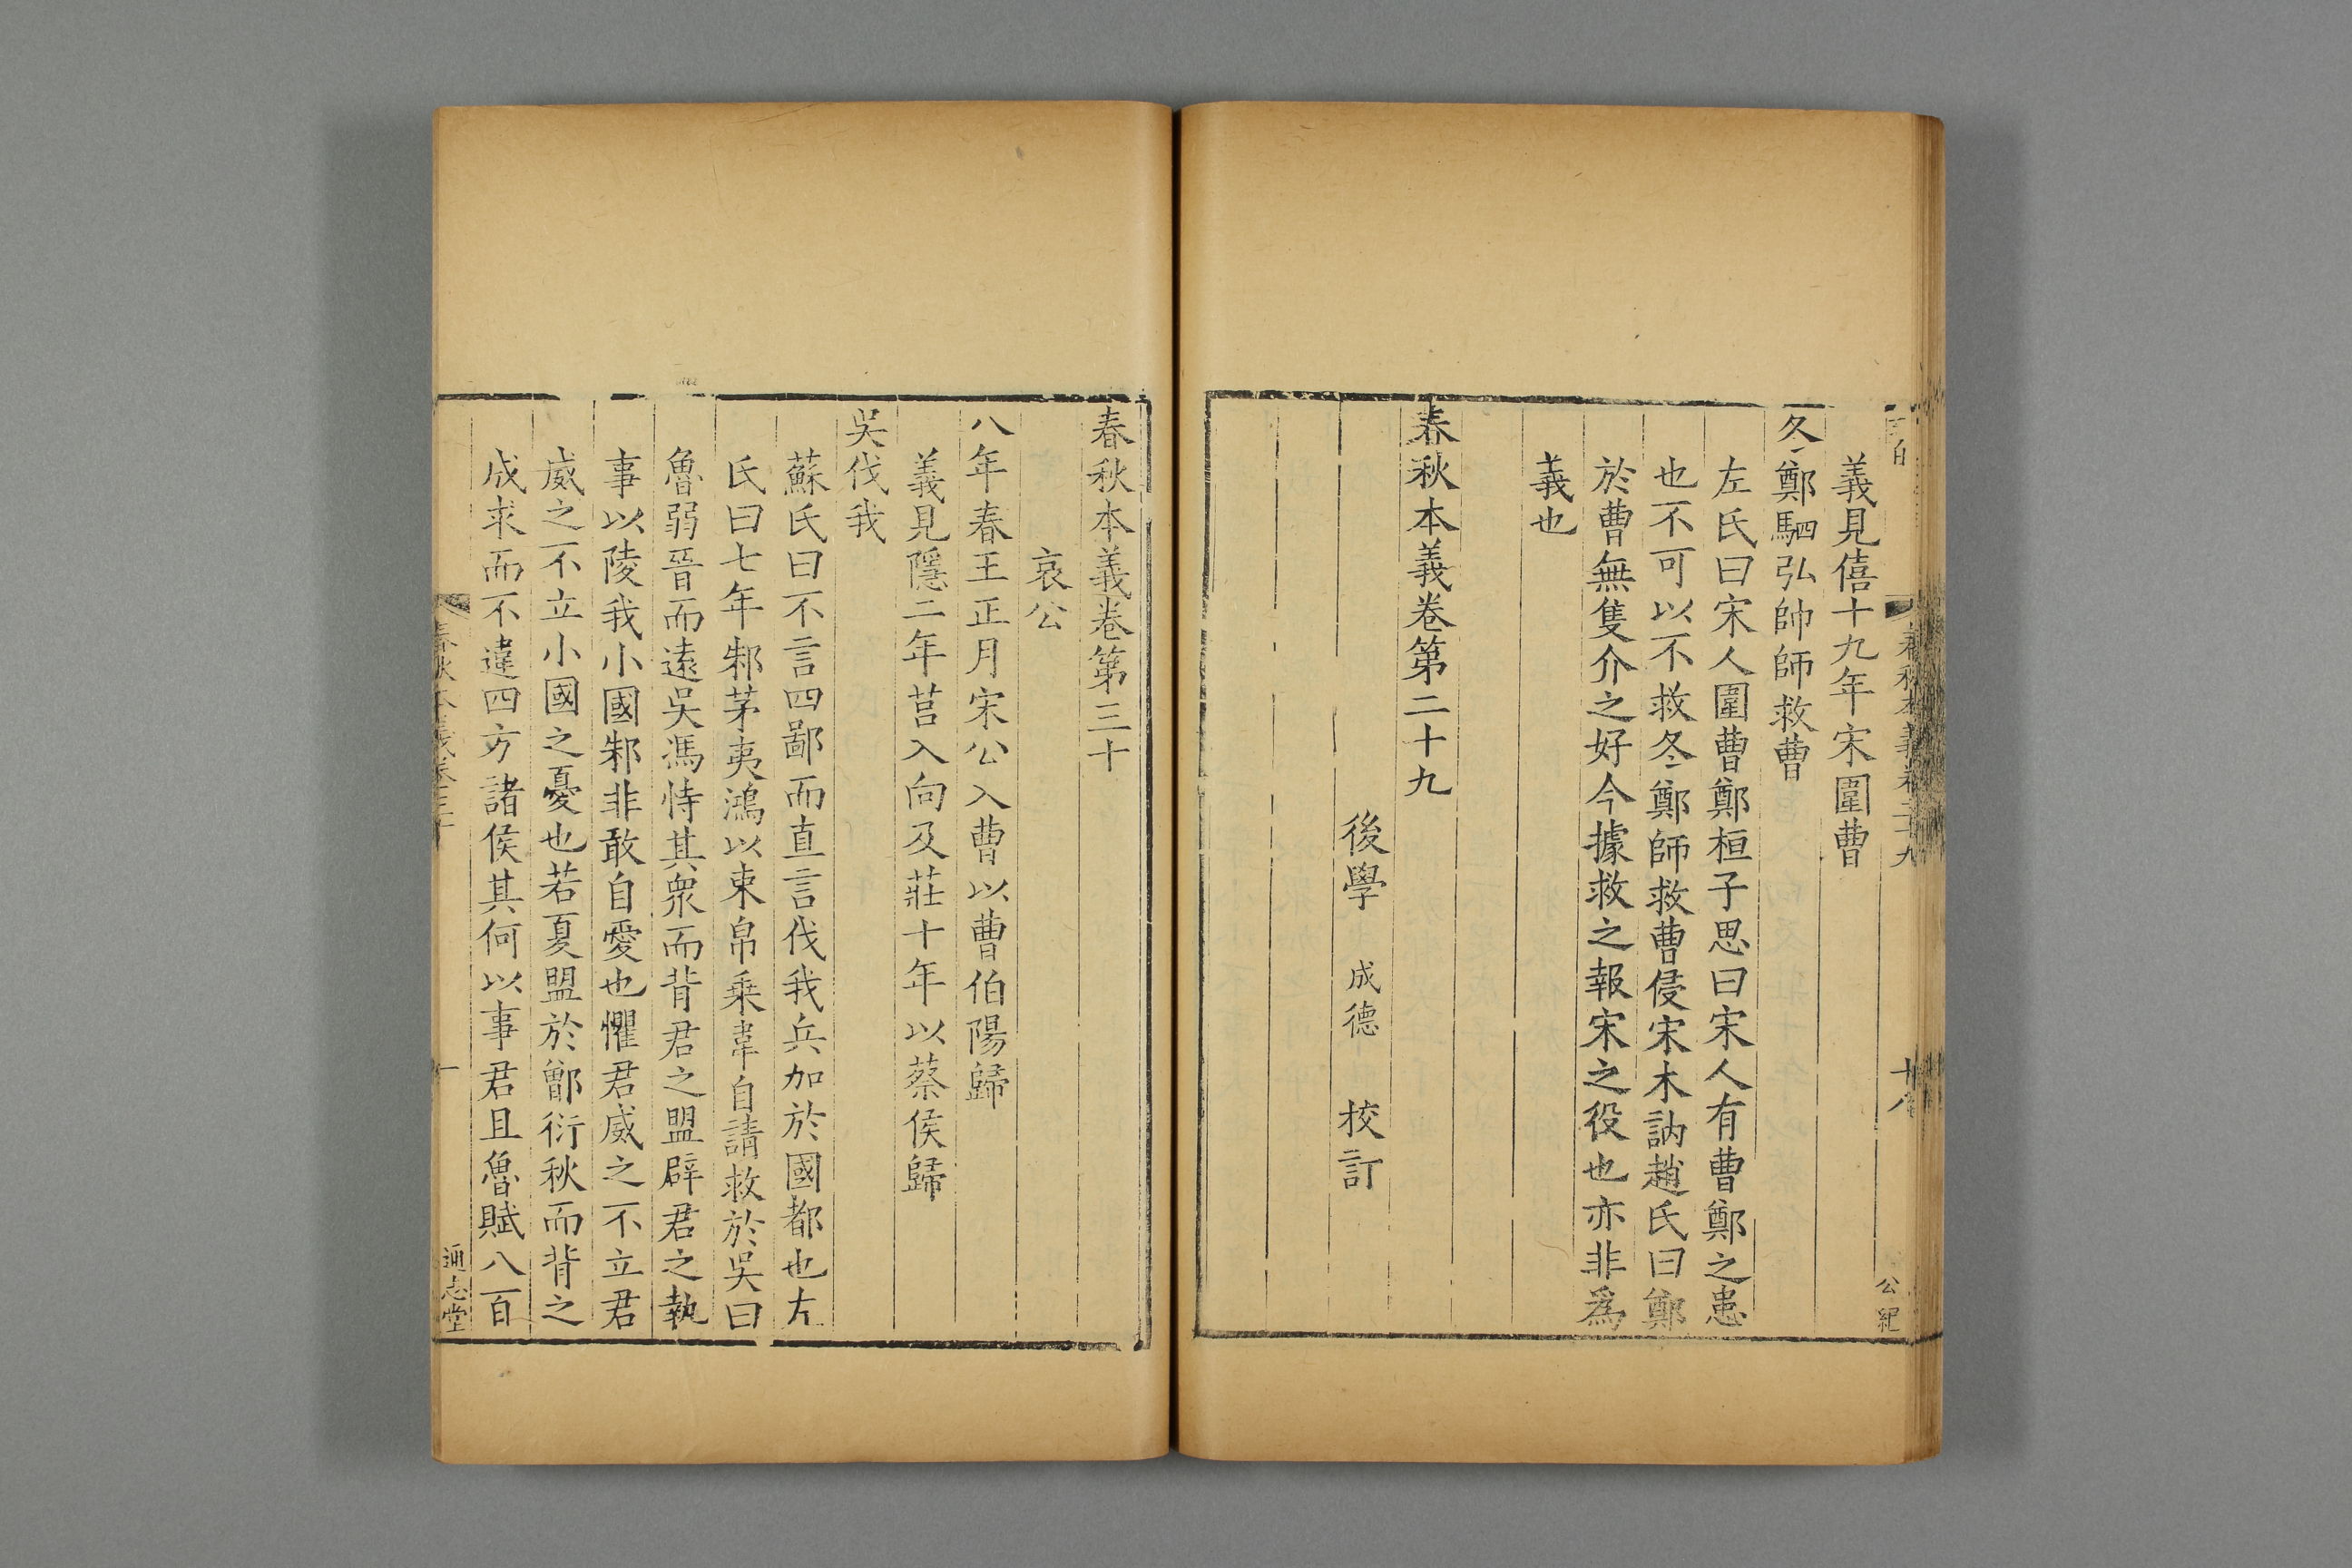 春秋本義卷二十九
十八
公紀
義見僖十九年宋圍曹
冬鄭駟弘帥師救曹
左氏曰宋人圍曹鄭桓子思曰宋人有曹鄭之患
也不可以不救冬鄭師救曹侵宋木訥趙氏曰鄭
於曹無隻介之好今據救之報宋之役也亦非爲
義也
春秋本義卷第二十九
後學 成德 校訂
春秋本義卷第三十
哀公
八年春王正月宋公入曹以曹伯陽歸
義見隱二年莒入向及莊十年以蔡侯歸
吳伐我
蘇氏曰不言四鄙而直言伐我兵加於國都也左
氏曰七年邾茅夷鴻以束帛乗韋自請救於吳曰
魯弱晉而遠吳馮恃其衆而背君之盟辟君之執
事以陵我小國邾非敢自愛也懼君威之不立君
威之不立小國之憂也若夏盟於鄫衍秋而背之
成求而不違四方諸侯其何以事君且魯賦八百
春秋本義卷三十
一
通志堂